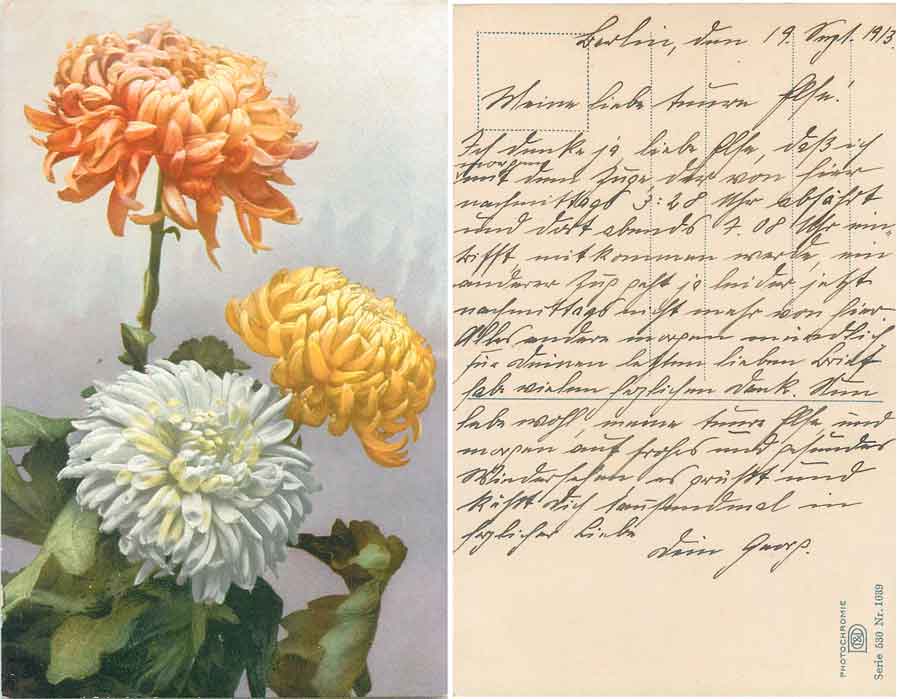 Berlin, den 19. Sept. 1913
Meine liebe teure Else!
Ich denke ja liebe Else, daß ich
morgen
mit dem Zuge, der von hier
nachmittags 3:28 Uhr abfährt
und dort abends 7.08 Uhr ein-
trifft mitkommen werde, ein
anderer Zug geht ja leider jetzt
nachmittags nicht mehr von hier.
Alles andere morgen mündlich
für Deinen letzten lieben Brief
hab vielen herzlichen Dank. Nun
lebe wohl, meine teure Else und
morgen auf frohes und gesundes
Wiedersehen es grüßt und
küßt Dich tausendmal in
herzlicher Liebe
Dein Georg.
PHOTOCHROMIE
Serie 530 Nr. 1689